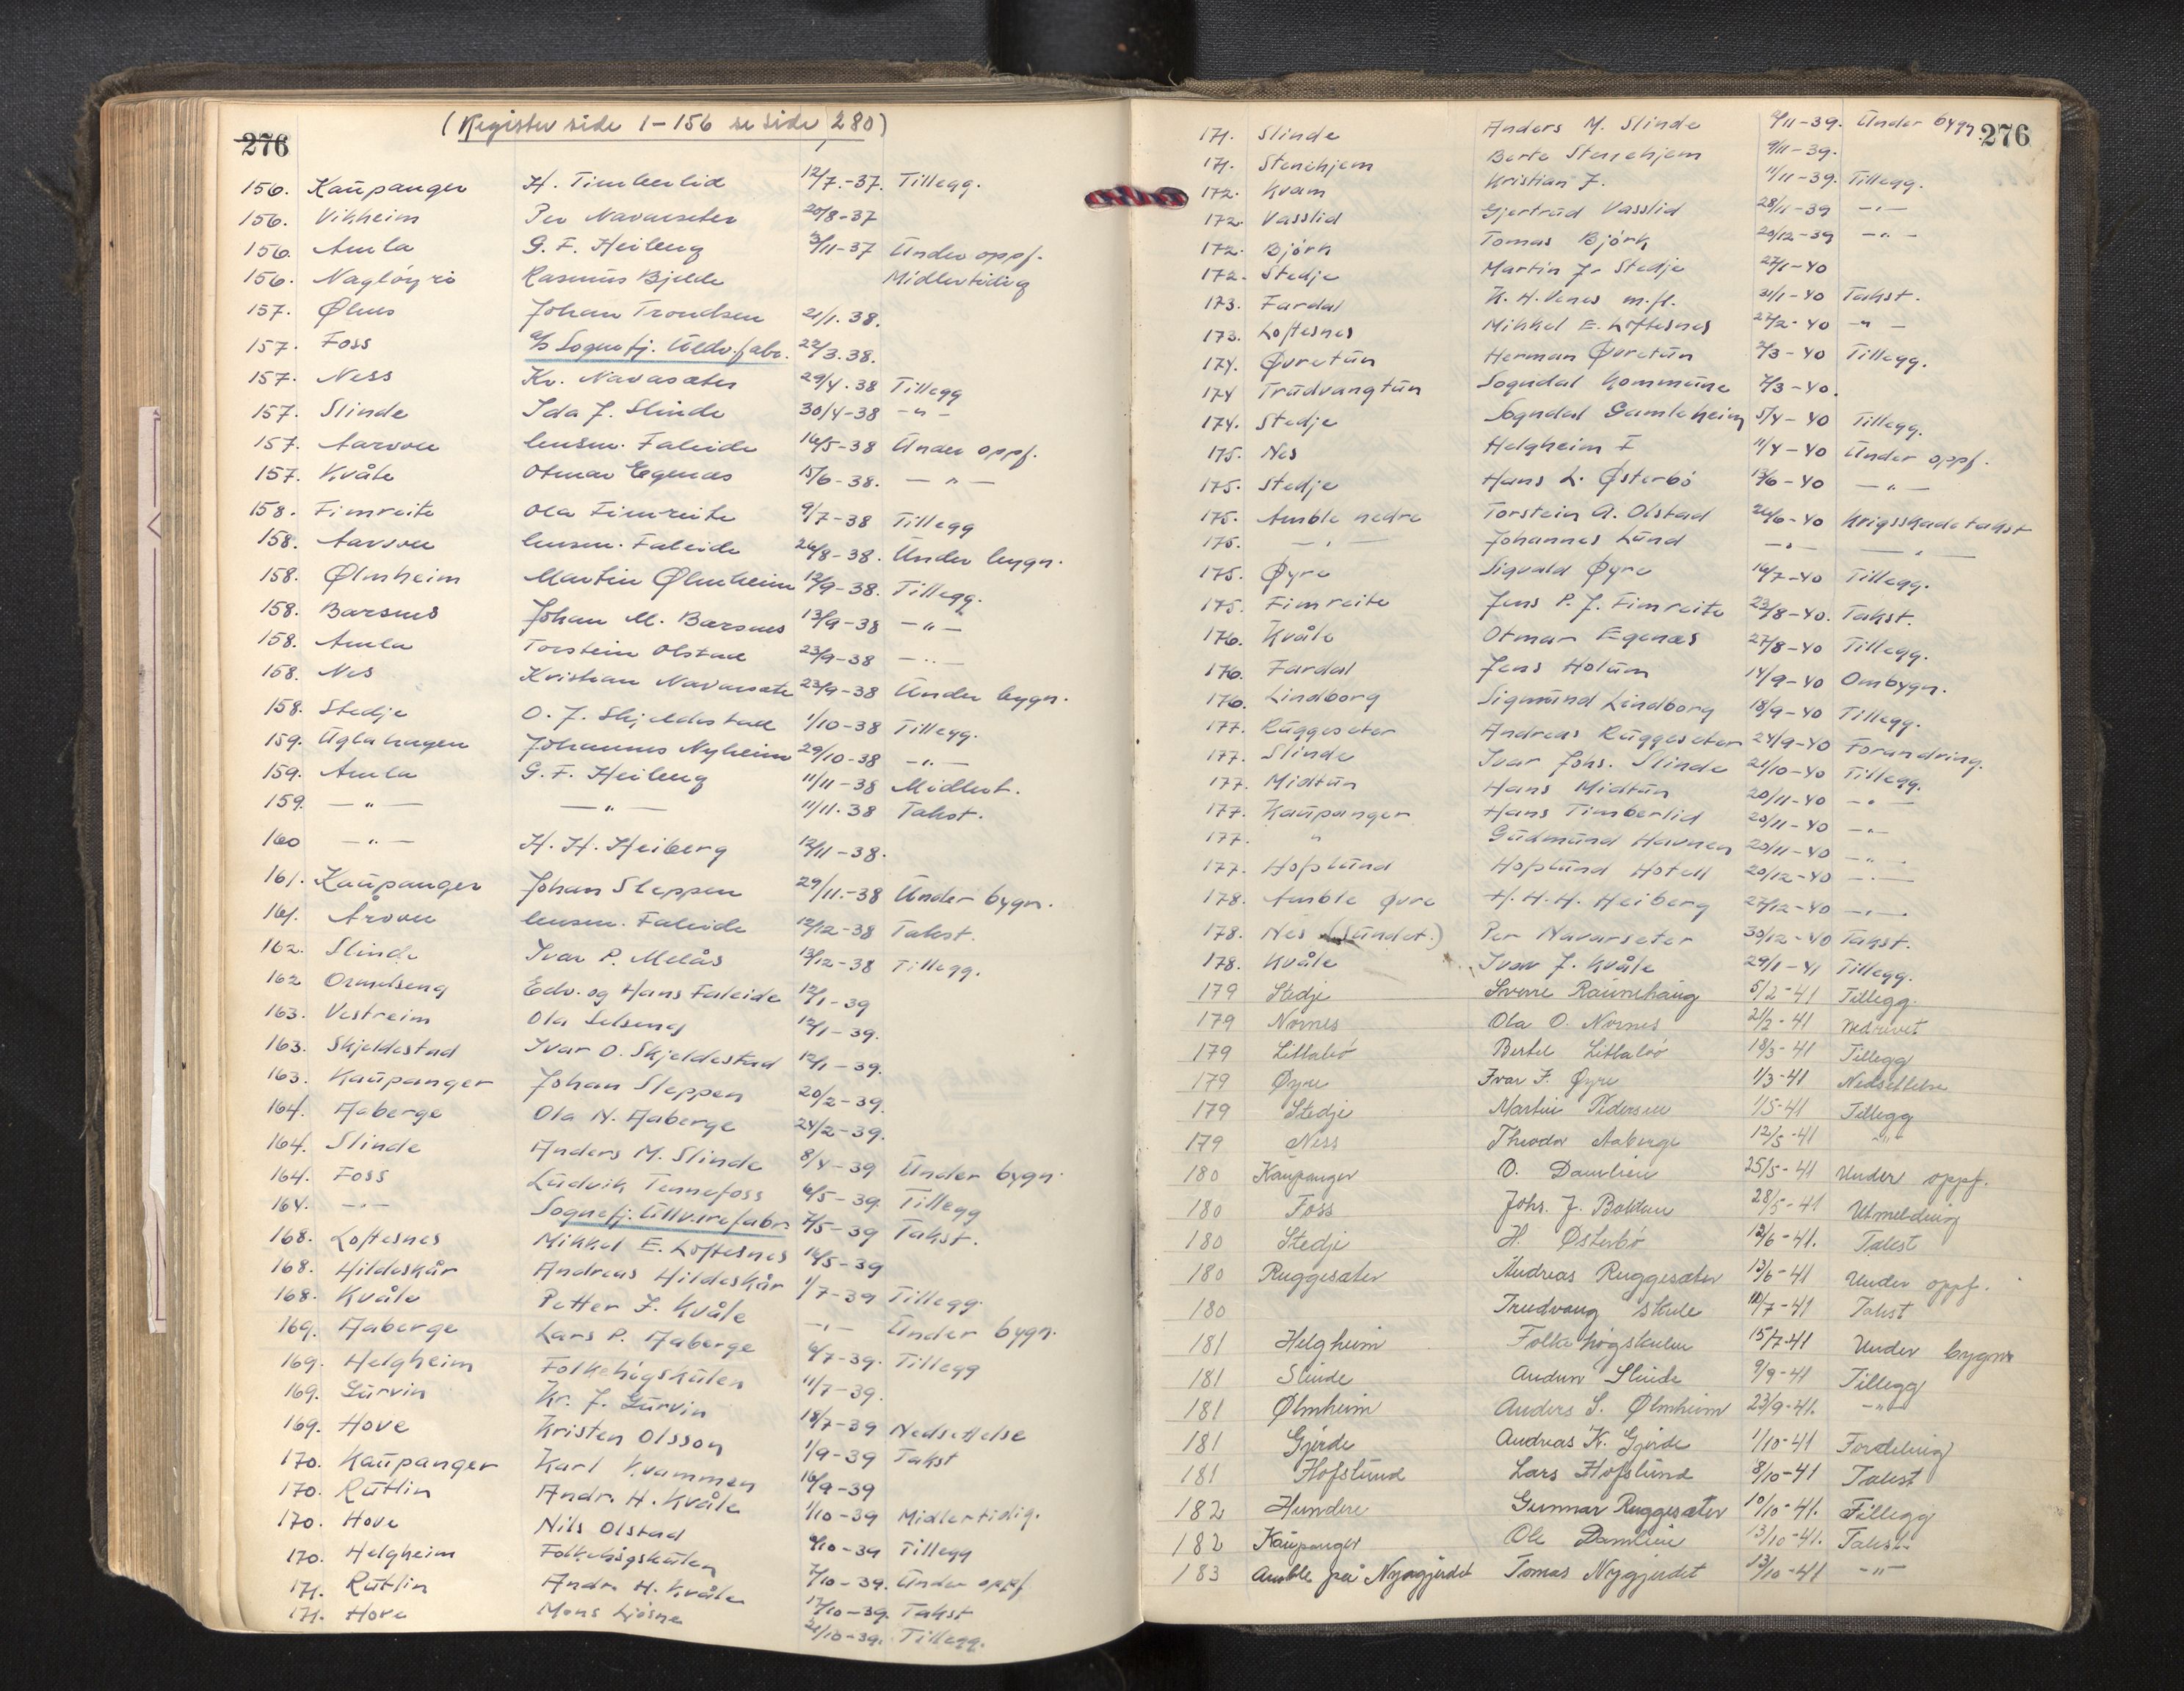 (Register side 1-156 se side 280)
276
156. Kaupanger H. Timberlid 12/7.-37. Tillegg.
156. Vikheim Per Navarseter 20/8-37
156. Amla G. F. Heiberg 3/11-37 Under oppf.
156. Rasmus Bjelde Midlertidig
157. Ølnes Johan Trondsen 21/1.38.
157. Foss a/s Sognefj. Uldv.fabr. 22/3.38.
157. Ness Kr. Navarsæter 29/4.38 Tillegg
157. Slinde Ida J. Slinde 30/4-38 -"-
157. Aarvoll lensm. Faleide 16/5-38 Under oppf.
157. Kvåle Otmar Egenæs 15/6-38. -"-
158. Fimreite Ola Fimreite 9/7-38 Tillegg
158. lensm. Faleide 26/8-38. Under bygn.
158. Ølmheim Martin Ølmheim 12/9-38. Tillegg.
158. Barsnes Johan M. Barsnes 13/9-38 -"-
158. Amla Torstein Olstad 23/9-38 -"-
158. Nes Kristian Navarsete 23/9-38 Under bygn.
158. Stedje O. J. Skjeldestad 1/10-38 Tillegg.
159. Uglahagen Johannes Nyheim 29/10-38 -"-
159. Amla G. F. Heiberg 11/11-38 Midlert.
159. -"- -"- 11/11.38 Takst.
160 -"- H. H. Heiberg 12/11-38.
161. Kaupanger Johan Steppen 29/11.-38 Under bygn.
161. lensm. Faleide 12/12-38 Takst.
162. Slinde Ivar P. Melås 13/12-38 Tillegg.
162 Ormelseng Edv. og Hans Faleide 12/1-39
163. Vestreim Ola Selseng 12/1-39.
163. Skjeldestad Ivar O. Skjeldestad 12/1-39.
163. Kaupanger Johan Sleppen 20/2-39.
164. Aaberge Ola N. Aaberge 24/2-39.
164. Slinde Anders M. Slinde 8/4-39 Under bygn.
164. Foss Ludvik Tennefoss 6/5-39 Tillegg
164. -"- Sognefj. Ullvarefabr. 7/5-39 Takst.
168. Loftesnes Mikkel E. Loftesnes 16/5-39
168. Hildeskår Andreas Hildeskår 1/7-39 Tillegg.
168. Kvåle Petter J. Kvåle -"- Under bygn.
169. Aaberge Lars P. Aaberge 6/7-39. Tillegg
169. Helgheim Folkehøgskulen 11/7-39.
169. Gurvin Kr. J. Gurvin 18/7-39 Nedsettelse
169. Hove Kristen Olsson 1/9-39 Takst
170. Kaupanger Karl Kvammen 16/9-39
170. Rutlin Andr. H. Kvåle 1/10-39 Midlertidig.
170. Hove Nils Olstad 9/10-39 Tillegg
170. Helgheim Folkehøgskulen 7/10-39. Under oppf
171. Rutlin Andr. H. Kvåle 17/10-39. Takst
171. Hove Mons Ljøsne 21/10-39. Tillegg.
276
171. Slinde Anders M. Slinde 9/11-39. Under bygn.
171. Stenehjem Berte Stenehjem 9/11-39.
172. Kvam Kristian J. 11/11-39. Tillegg.
172. Vasslid Gjertrud Vasslid 28/11-39 -"-
172. Bjørk Tomas Bjørk 20/12-39 -"-
172. Stedje Martin J. Stedje 27/1-40
173. Fardal K. H. Venes m.fl. 31/1-40 Takst.
173. Loftesnes Mikkel E. Loftesnes 27/2-40 -"-
174. Øvretun Herman Øvretun 2/3-40 Tillegg.
174 Trudvangtun Sogndal Kommune 7/3-40.
174. Stedje Sogndal Gamleheim 5/4-40 Tillegg.
175. Nes Helgheim I 11/4-40 Under oppf.
175. Stedje Hans L. Østerbø 13/6-40 -"-
175. Amble nedre Torstein A. Olstad 26/6-40 Krigsskadetakst
175. -"- Johannes Lund -"- -"-
175. Øyre Sigvald Øyre 16/7-40 Tillegg.
175. Fimreite Jens P. J. Fimreite 23/8-40. Takst.
176. Kvåle Otmar Egenæs 27/8-40 Tillegg.
176. Fardal Jens Holum 14/9-40 Ombygn.
176. Lindborg Sigmund Lindborg 18/9-40 Tillegg.
177. Ruggeseter Andreas Ruggeseter 24/9-40 Forandring.
177. Slinde Ivar Johs. Slinde 21/10-40 Tillegg.
177. Midtun Hans Midtun 20/11-40 -"-
177. Kaupanger Hans Timberlid 20/11-40 -"-
177. " Gudmund Havnen 20/11-40 -"-
177. Hofslund Hofslund Hotell 20/12-40 -"-
178. Amble øvre H. H. H. Heiberg 27/12-40 -"-
178. Nes (Sundet.) Per Navarseter 30/12-40 Takst.
178. Kvåle Ivar J. Kvåle 29/1-41 Tillegg.
179 Stedje Sverre Raunehaug 5/2-41 Tillegg.
179 Nornes Ola O. Nornes 21/2-41 nedrivet
179 Littlebø Bertel Littlebø 18/3-41 Tillegg
179 Øyre Ivar F. Øyre 1/3-41 Nedsettelse
179 Stedje Martin Pedersen 1/5-41 Tillegg
179 Ness Theodor Aaberge 12/5-41 -"-
180 Kaupanger O. Damlien 25/5-41 Under oppf.
180 Foss Johs. J. 28/5-41 Utmelding
180 Stedje H. Østerbø 12/6-41. Takst
180 Ruggesæter Andreas Ruggesæter 13/6-41 Under oppf.
180 Trudvang skule 10/7-41 Takst
181 Helgheim Folkehøgskulen 15/7-41 Under bygn
181 Slinde Audun Slinde 9/9-41 Tillegg
181 Ølmheim Anders S. Ølmheim 23/9-41. -"-
181 Gjerde Andreas K. Gjerde 1/10-41 Fordeling
181 Hofslund Lars Hofslund 8/10-41 Takst
182 Hundere Gunnar Ruggesæter 10/10-41. Tillegg
182 Kaupanger Ole Damlien 13/10-41. Takst
183 Amble på Nygjerdet Tomas Nygjerdet 13/10-41 -"-